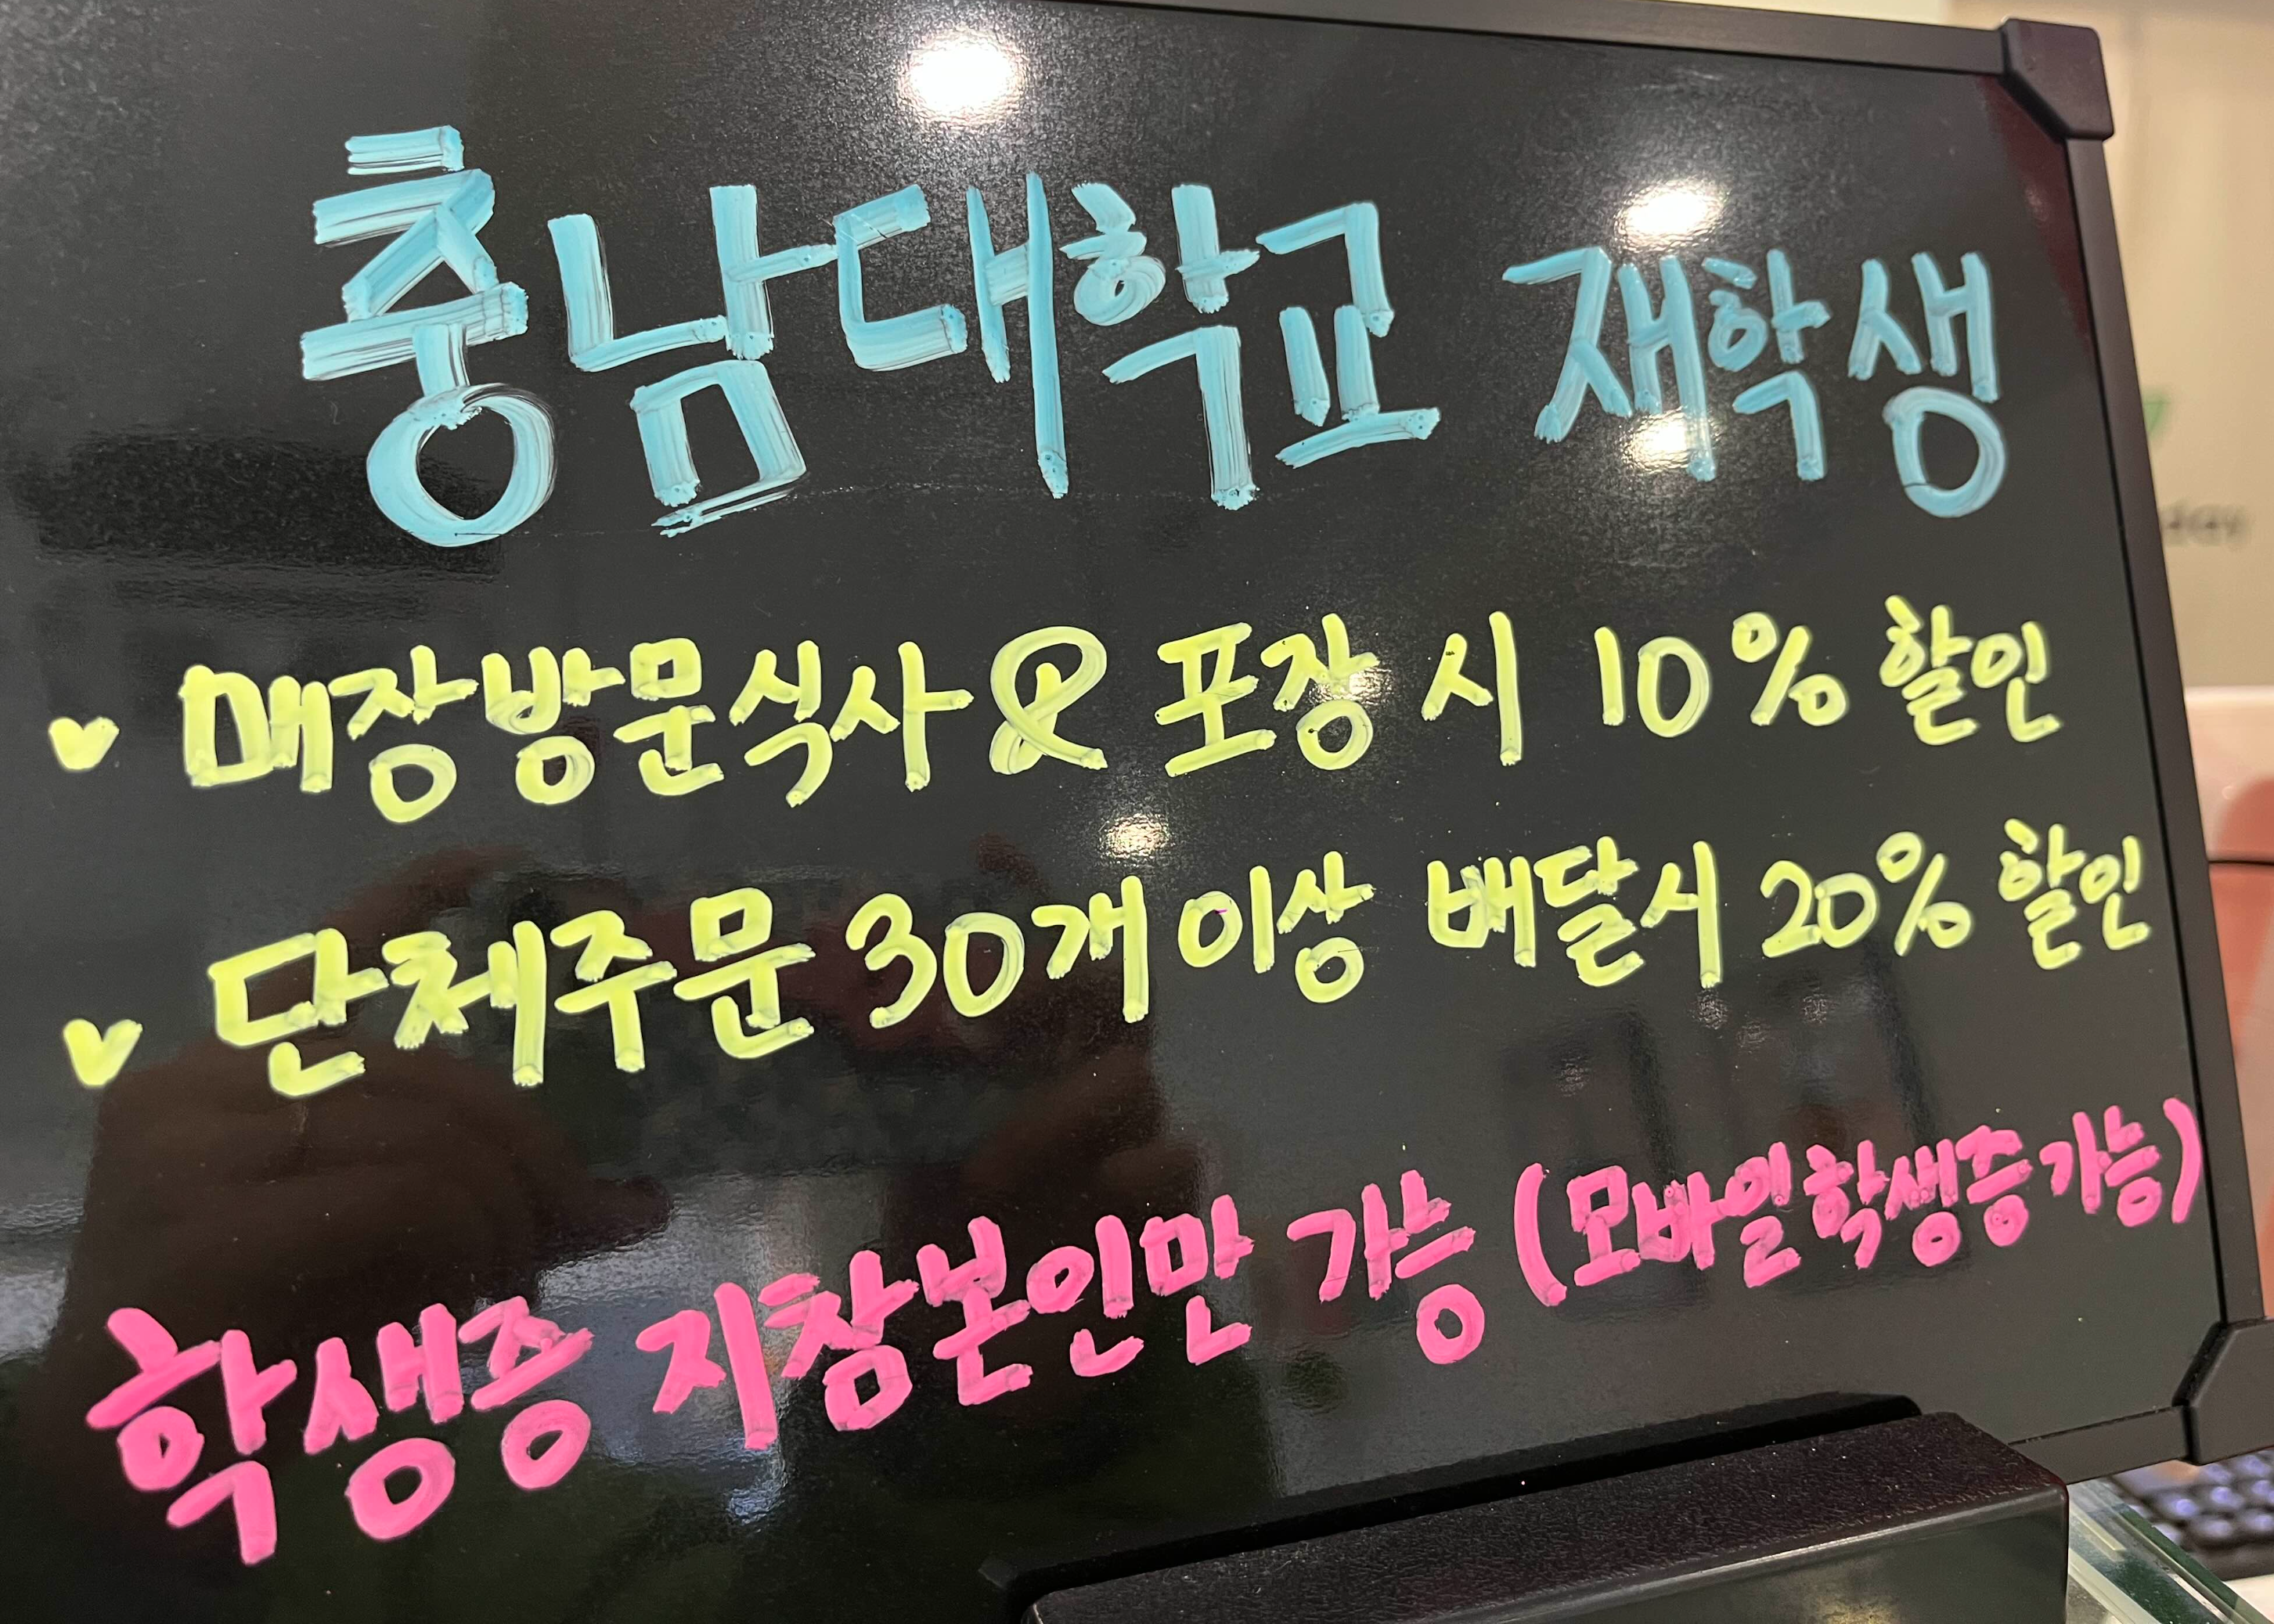 충남대학교 재학생
♥ 매장방문식사 & 포장 시 10% 할인
♥ 단체주문 30개 이상 배달시 20% 할인
학생증 지참본인만 가능 (모바일학생증가능)